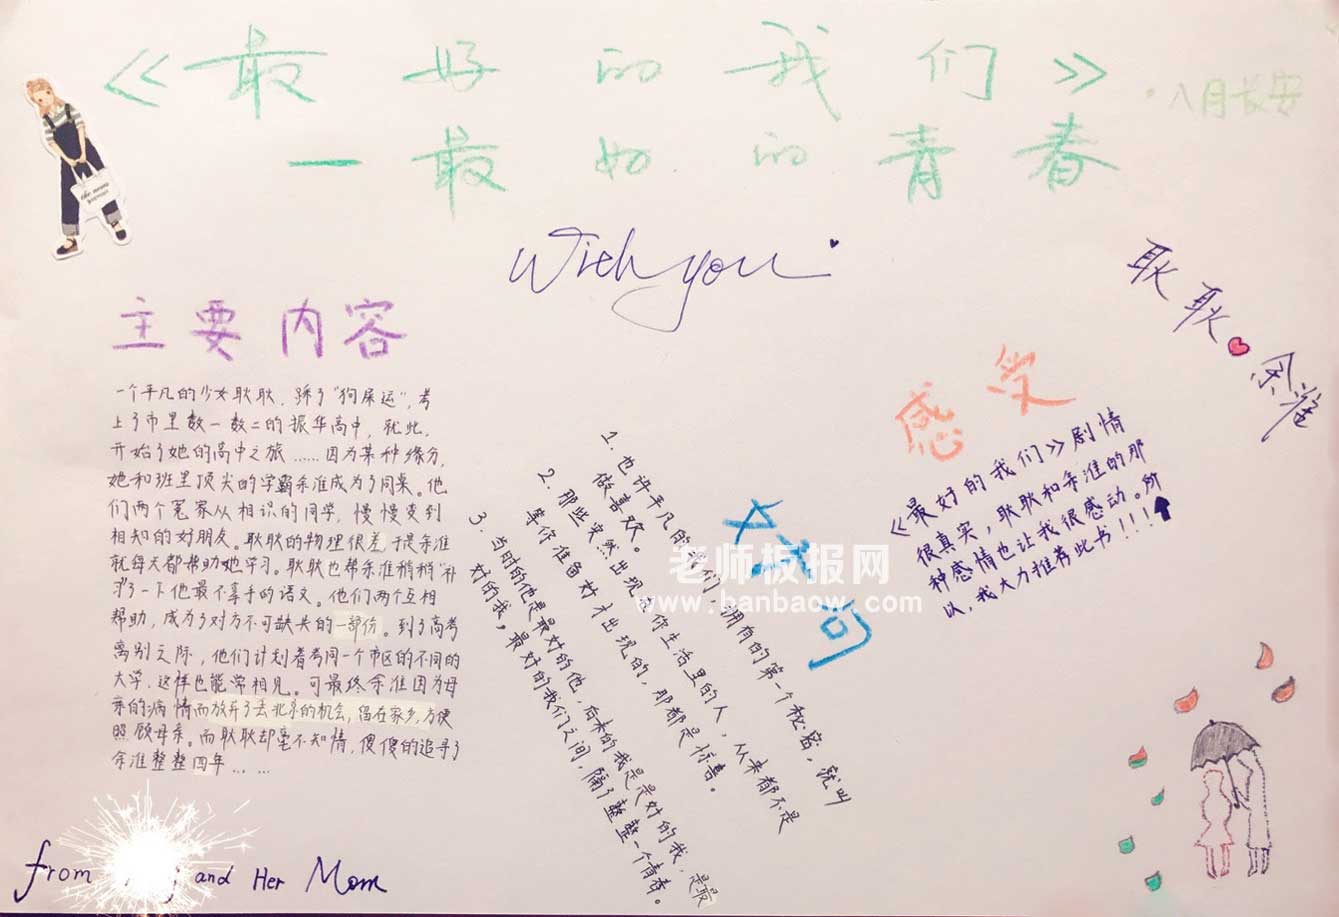 《最好的我们》
·八月长安
一最好的青春
With you
耿耿 余淮
主要内容
一个平凡的少女耿耿，踩了“狗屎运”，考
上了市里数一数二的振华高中，就此，
开始了她的高中之旅……因为某种缘分，
她和班里顶尖的学霸余淮成为了同桌。他
们两个冤家从相识的同学，慢慢变到
相知的好朋友。耿耿的物理很差于是余淮
就每天都帮助她学习。耿耿也帮余淮稍稍“补
习”了一下他最不拿手的语文。他们两个互相
帮助，成为了对方不可缺失的一部份。到了高考
离别之际，他们计划着考同一个市区的不同的
大学，这样也能常相见。可最终余淮因为母
亲的病情而放弃了去北京的机会，留在家乡，方便
照顾母亲。而耿耿却毫不知情，傻傻的追寻了
余淮整整四年……
好句
1. 也许平凡的我们，拥有的第一个秘密，就叫
做喜欢。
2. 那些突然出现在你生活里的人，从来都不是
等你准备好才出现的，那都是惊喜。
3. 当时的他是最好的他，后来的我是最好的我，是最
好的我，最好的我们之间，隔了整整一个青春。
感受
《最好的我们》剧情
很真实，耿耿和余淮的那
种感情也让我很感动。所
以，我大力推荐此书！！！
老师板报网
www.banbaow.com
the
from and Her Mom